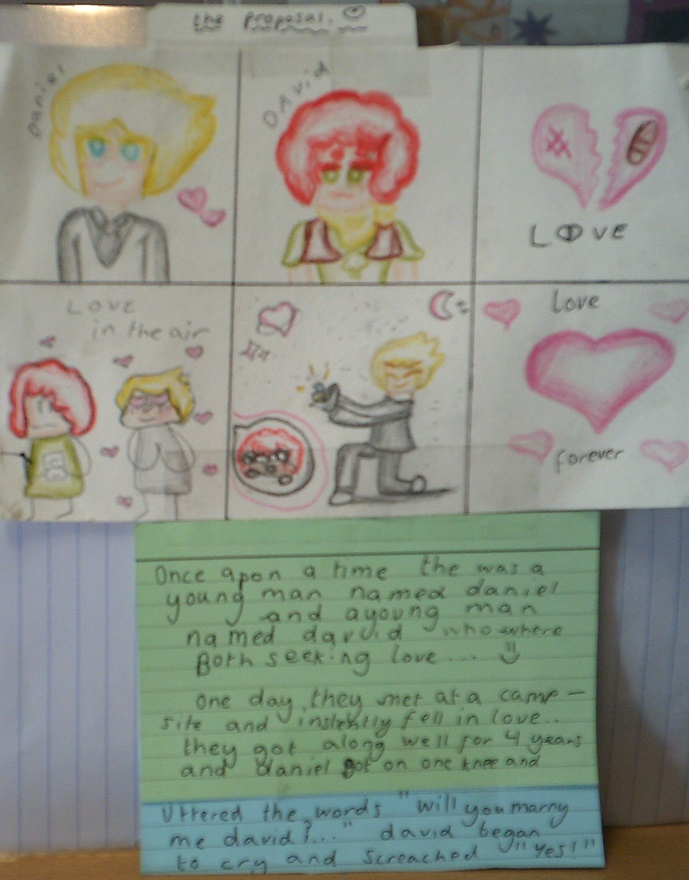 the proposal.
Daniel
DAVID
LOVE
LOVE
in the air
love
forever
Once apon a time the was a
young man named daniel
and a young man
named david who where
Both seeking love...
one day, they met at a camp-
site and instently fell in love..
they got along well for 4 years
and daniel got on one knee and
uttered the words "will you marry
me david?..." david began
to cry and screached "yes!"